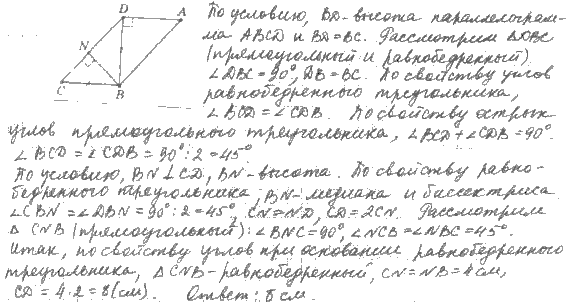 D A
N
C B
По условию, BD-высота параллелограм-
ма ABCD и BD=BC. Рассмотрим △DBC
(прямоугольный и равнобедренный)
∠DBC = 90°, DB = BC. По свойству углов
равнобедренного треугольника,
∠BCD = ∠CDB. По свойству острых
углов прямоугольного треугольника, ∠BCD+∠CDB = 90°.
∠BCD = ∠CDB = 90°:2 = 45°
По условию, BN⊥CD, BN-высота. По свойству равно-
бедренного треугольника, BN-медиана и биссектриса
∠CBN = ∠DBN = 90°:2 = 45°, CN = ND, CD = 2CN. Рассмотрим
△CNB (прямоугольный): ∠BNC = 90°, ∠NCB = ∠NBC = 45°.
Итак, по свойству углов при основании равнобедренного
треугольника, △CNB-равнобедренный, CN = NB = 4 см,
CD = 4·2 = 8 (см). Ответ: 8 см.